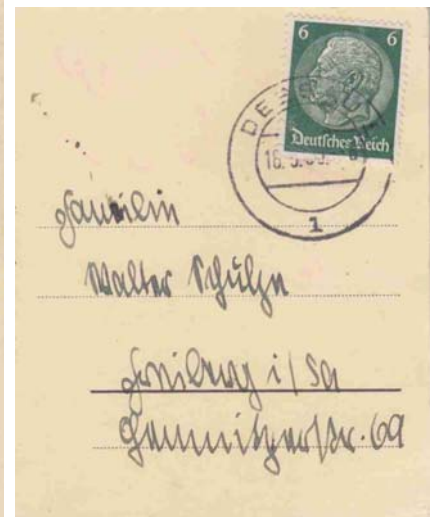 6 6
Deutsches Reich
1
Familie
Walter Schulze
Freiberg i/Sa
Chemnitzerstr. 69